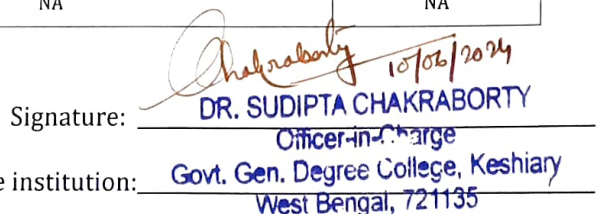 NA NA
Chakraborty 10/06/2024
Signature: DR. SUDIPTA CHAKRABORTY
Officer-in-Charge
e institution: Govt. Gen. Degree College, Keshiary
West Bengal, 721135